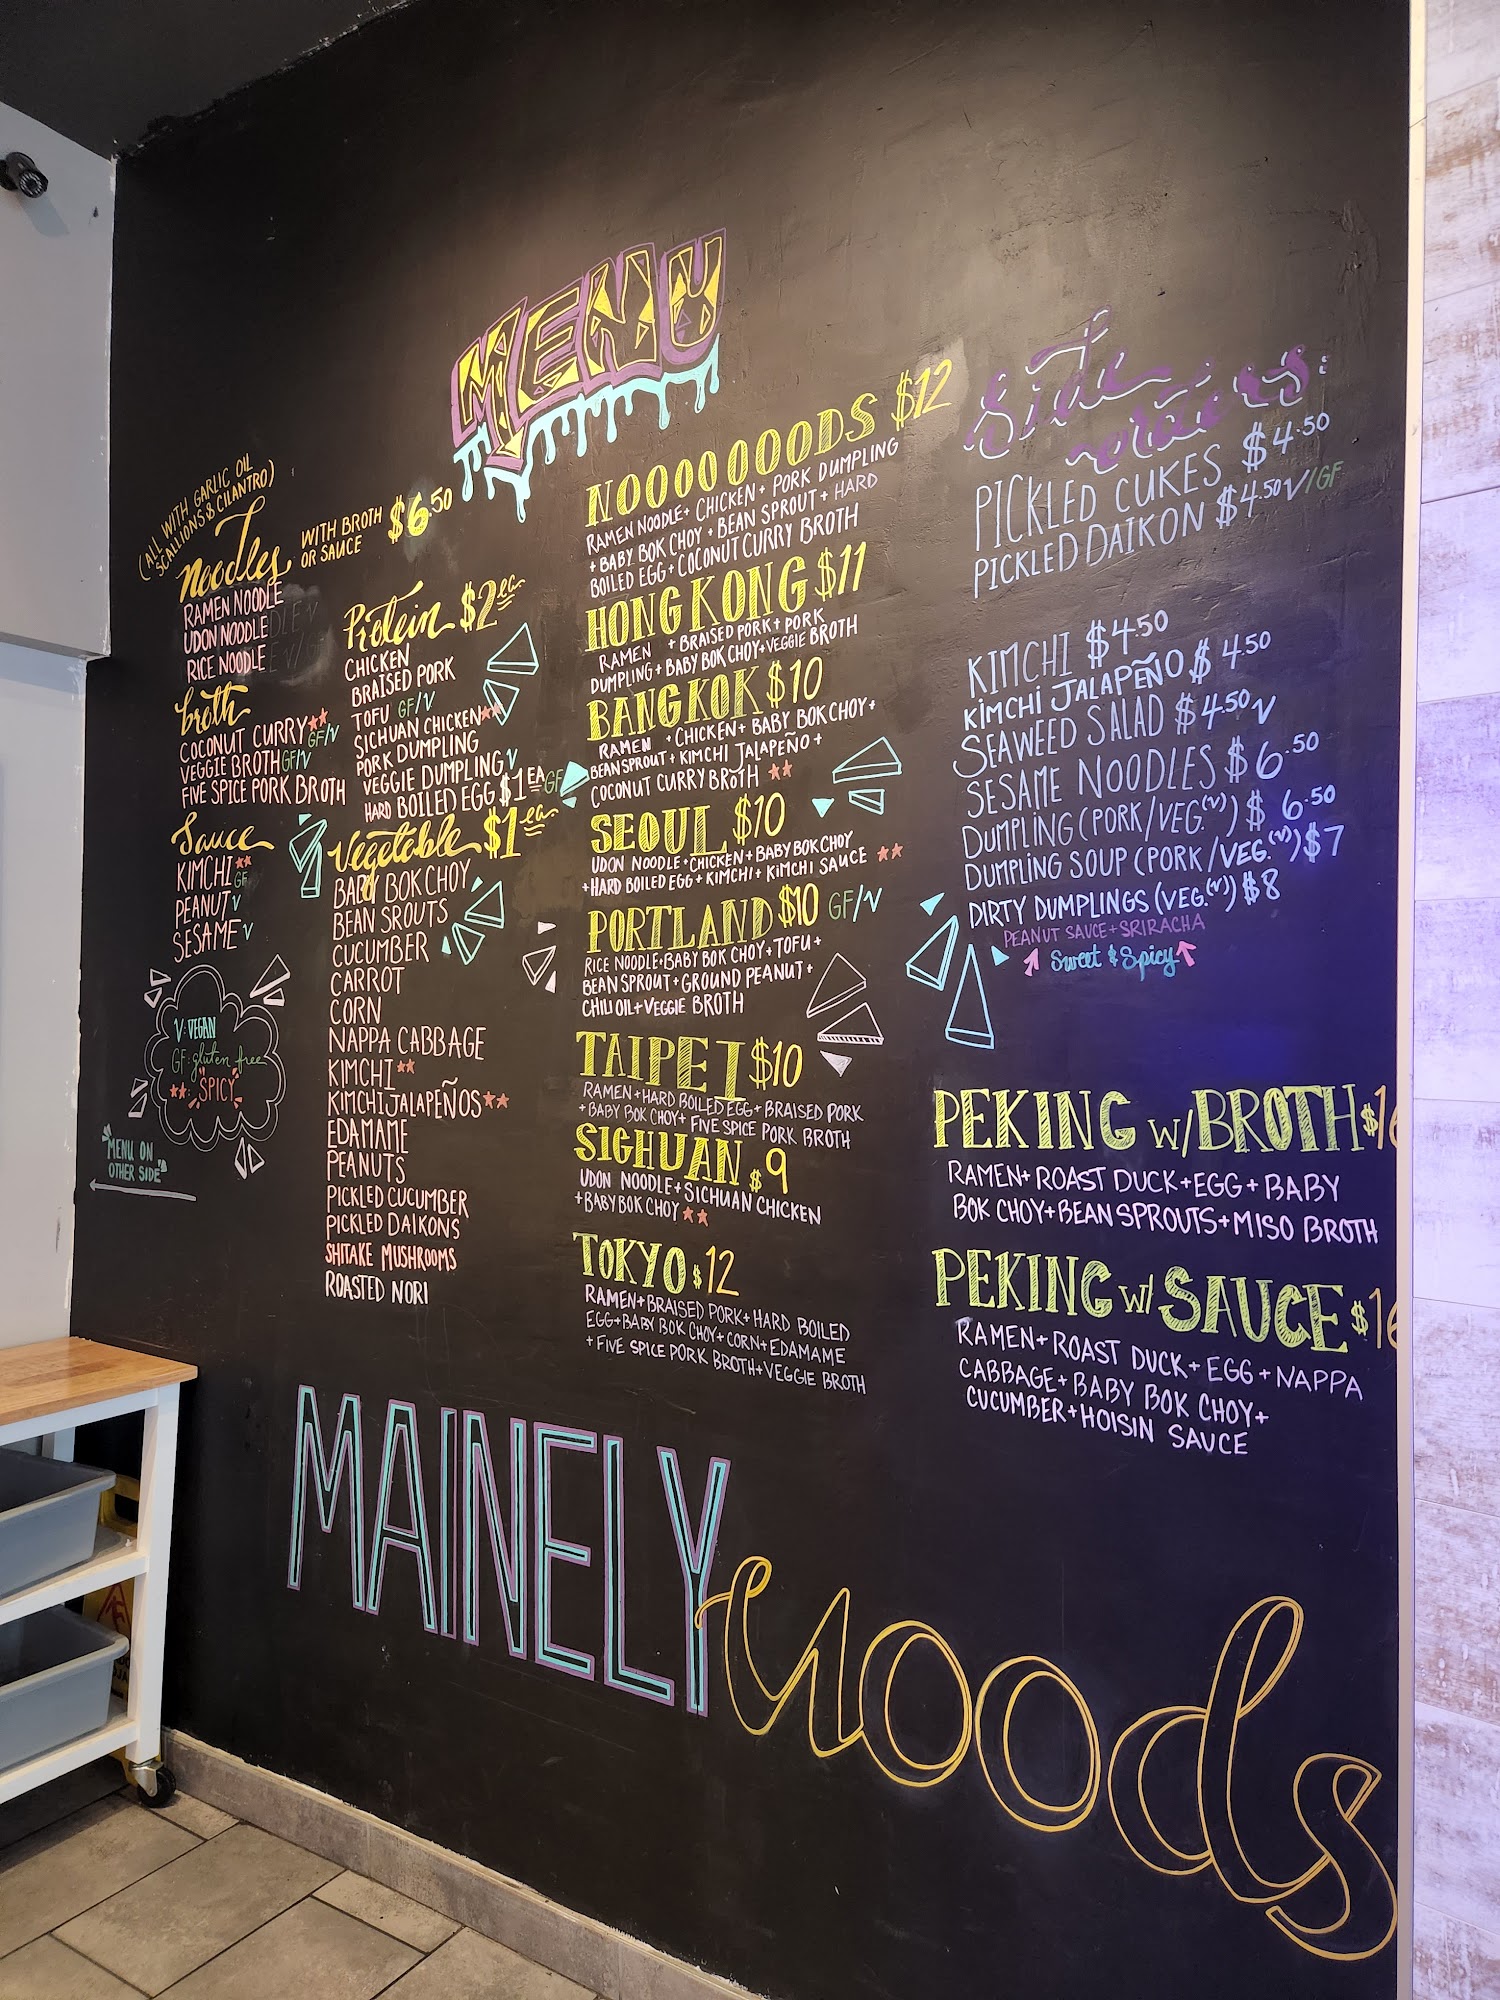 MENU
(ALL WITH GARLIC OIL
SCALLIONS & CILANTRO)
Noodles
WITH BROTH
OR SAUCE
$6.50
RAMEN NOODLE
UDON NOODLE
RICE NOODLE
broth
COCONUT CURRY** GF/V
VEGGIE BROTH GF/V
FIVE SPICE PORK BROTH
Sauce
KIMCHI** GF
PEANUT V
SESAME V
V: VEGAN
GF: gluten free
**: SPICY
"MENU ON
OTHER SIDE"
Protein $2 ea
CHICKEN
BRAISED PORK
TOFU GF/V
SICHUAN CHICKEN**
PORK DUMPLING
VEGGIE DUMPLING V
HARD BOILED EGG $1 EA GF
Vegetable $1 ea
BABY BOK CHOY
BEAN SROUTS
CUCUMBER
CARROT
CORN
NAPPA CABBAGE
KIMCHI**
KIMCHI JALAPEÑOS**
EDAMAME
PEANUTS
PICKLED CUCUMBER
PICKLED DAIKONS
SHITAKE MUSHROOMS
ROASTED NORI
NOOOOOOODS $12
RAMEN NOODLE+ CHICKEN+ PORK DUMPLING
+ BABY BOK CHOY + BEAN SPROUT + HARD
BOILED EGG + COCONUT CURRY BROTH
HONG KONG $11
RAMEN + BRAISED PORK + PORK
DUMPLING + BABY BOK CHOY+VEGGIE BROTH
BANGKOK $10
RAMEN +CHICKEN+ BABY BOK CHOY+
BEANSPROUT + KIMCHI JALAPEÑO +
COCONUT CURRY BROTH **
SEOUL $10
UDON NOODLE+CHICKEN+ BABY BOK CHOY
+HARD BOILED EGG + KIMCHI + KIMCHI SAUCE **
PORTLAND $10 GF/V
RICE NOODLE+BABY BOK CHOY+TOFU+
BEAN SPROUT+GROUND PEANUT+
CHILI OIL+VEGGIE BROTH
TAIPEI $10
RAMEN+HARD BOILED EGG+BRAISED PORK
+BABY BOK CHOY+ FIVE SPICE PORK BROTH
SICHUAN $9
UDON NOODLE+SICHUAN CHICKEN
+BABY BOK CHOY **
TOKYO $12
RAMEN+BRAISED PORK+HARD BOILED
EGG+BABY BOK CHOY+CORN+EDAMAME
+ FIVE SPICE PORK BROTH+VEGGIE BROTH
Side orders:
PICKLED CUKES $4.50
PICKLED DAIKON $4.50 V/GF
KIMCHI $4.50
KIMCHI JALAPEÑO $4.50
SEAWEED SALAD $4.50 V
SESAME NOODLES $6.50
DUMPLING (PORK/VEG.(V)) $6.50
DUMPLING SOUP (PORK/VEG.(V)) $7
DIRTY DUMPLINGS (VEG.(V)) $8
PEANUT SAUCE+SRIRACHA
Sweet & Spicy
PEKING W/ BROTH $16
RAMEN+ ROAST DUCK+EGG+BABY
BOK CHOY+BEAN SPROUTS+MISO BROTH
PEKING W/ SAUCE $16
RAMEN+ ROAST DUCK+ EGG+NAPPA
CABBAGE+BABY BOK CHOY+
CUCUMBER+HOISIN SAUCE
MAINELY noods